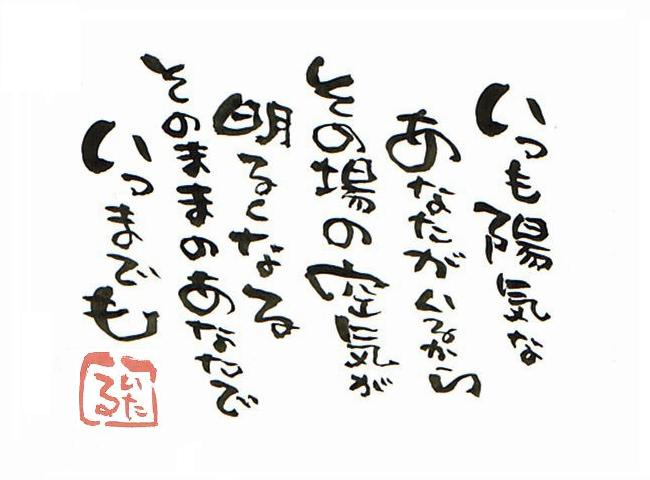 いつも陽気な
あなたがいるから
その場の空気が
明るくなる
そのままのあなたで
いつまでも
いたる